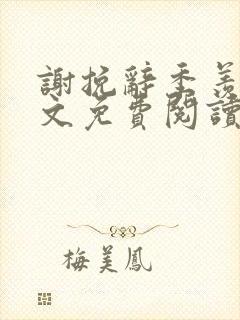 謝挽辭季羨
文免費閱讀
梅美鳳